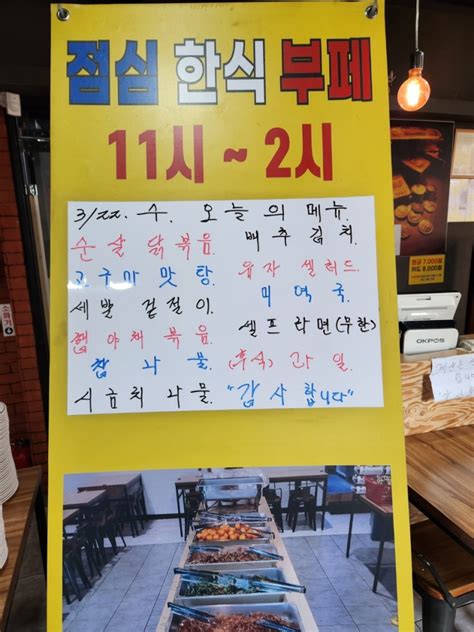 점심 한식 부페
11시 ~ 2시
3/22. 수. 오늘의 메뉴.
순살 닭볶음. 배추김치.
고구마 맛탕. 유자 샐러드.
세발 겉절이. 미역국.
햄야채볶음. 셀프 라면(무한)
참나물. (후식) 과일.
시금치나물. "감사합니다"
현금 7,000원
카드 8,000원
OKPOS
소화기